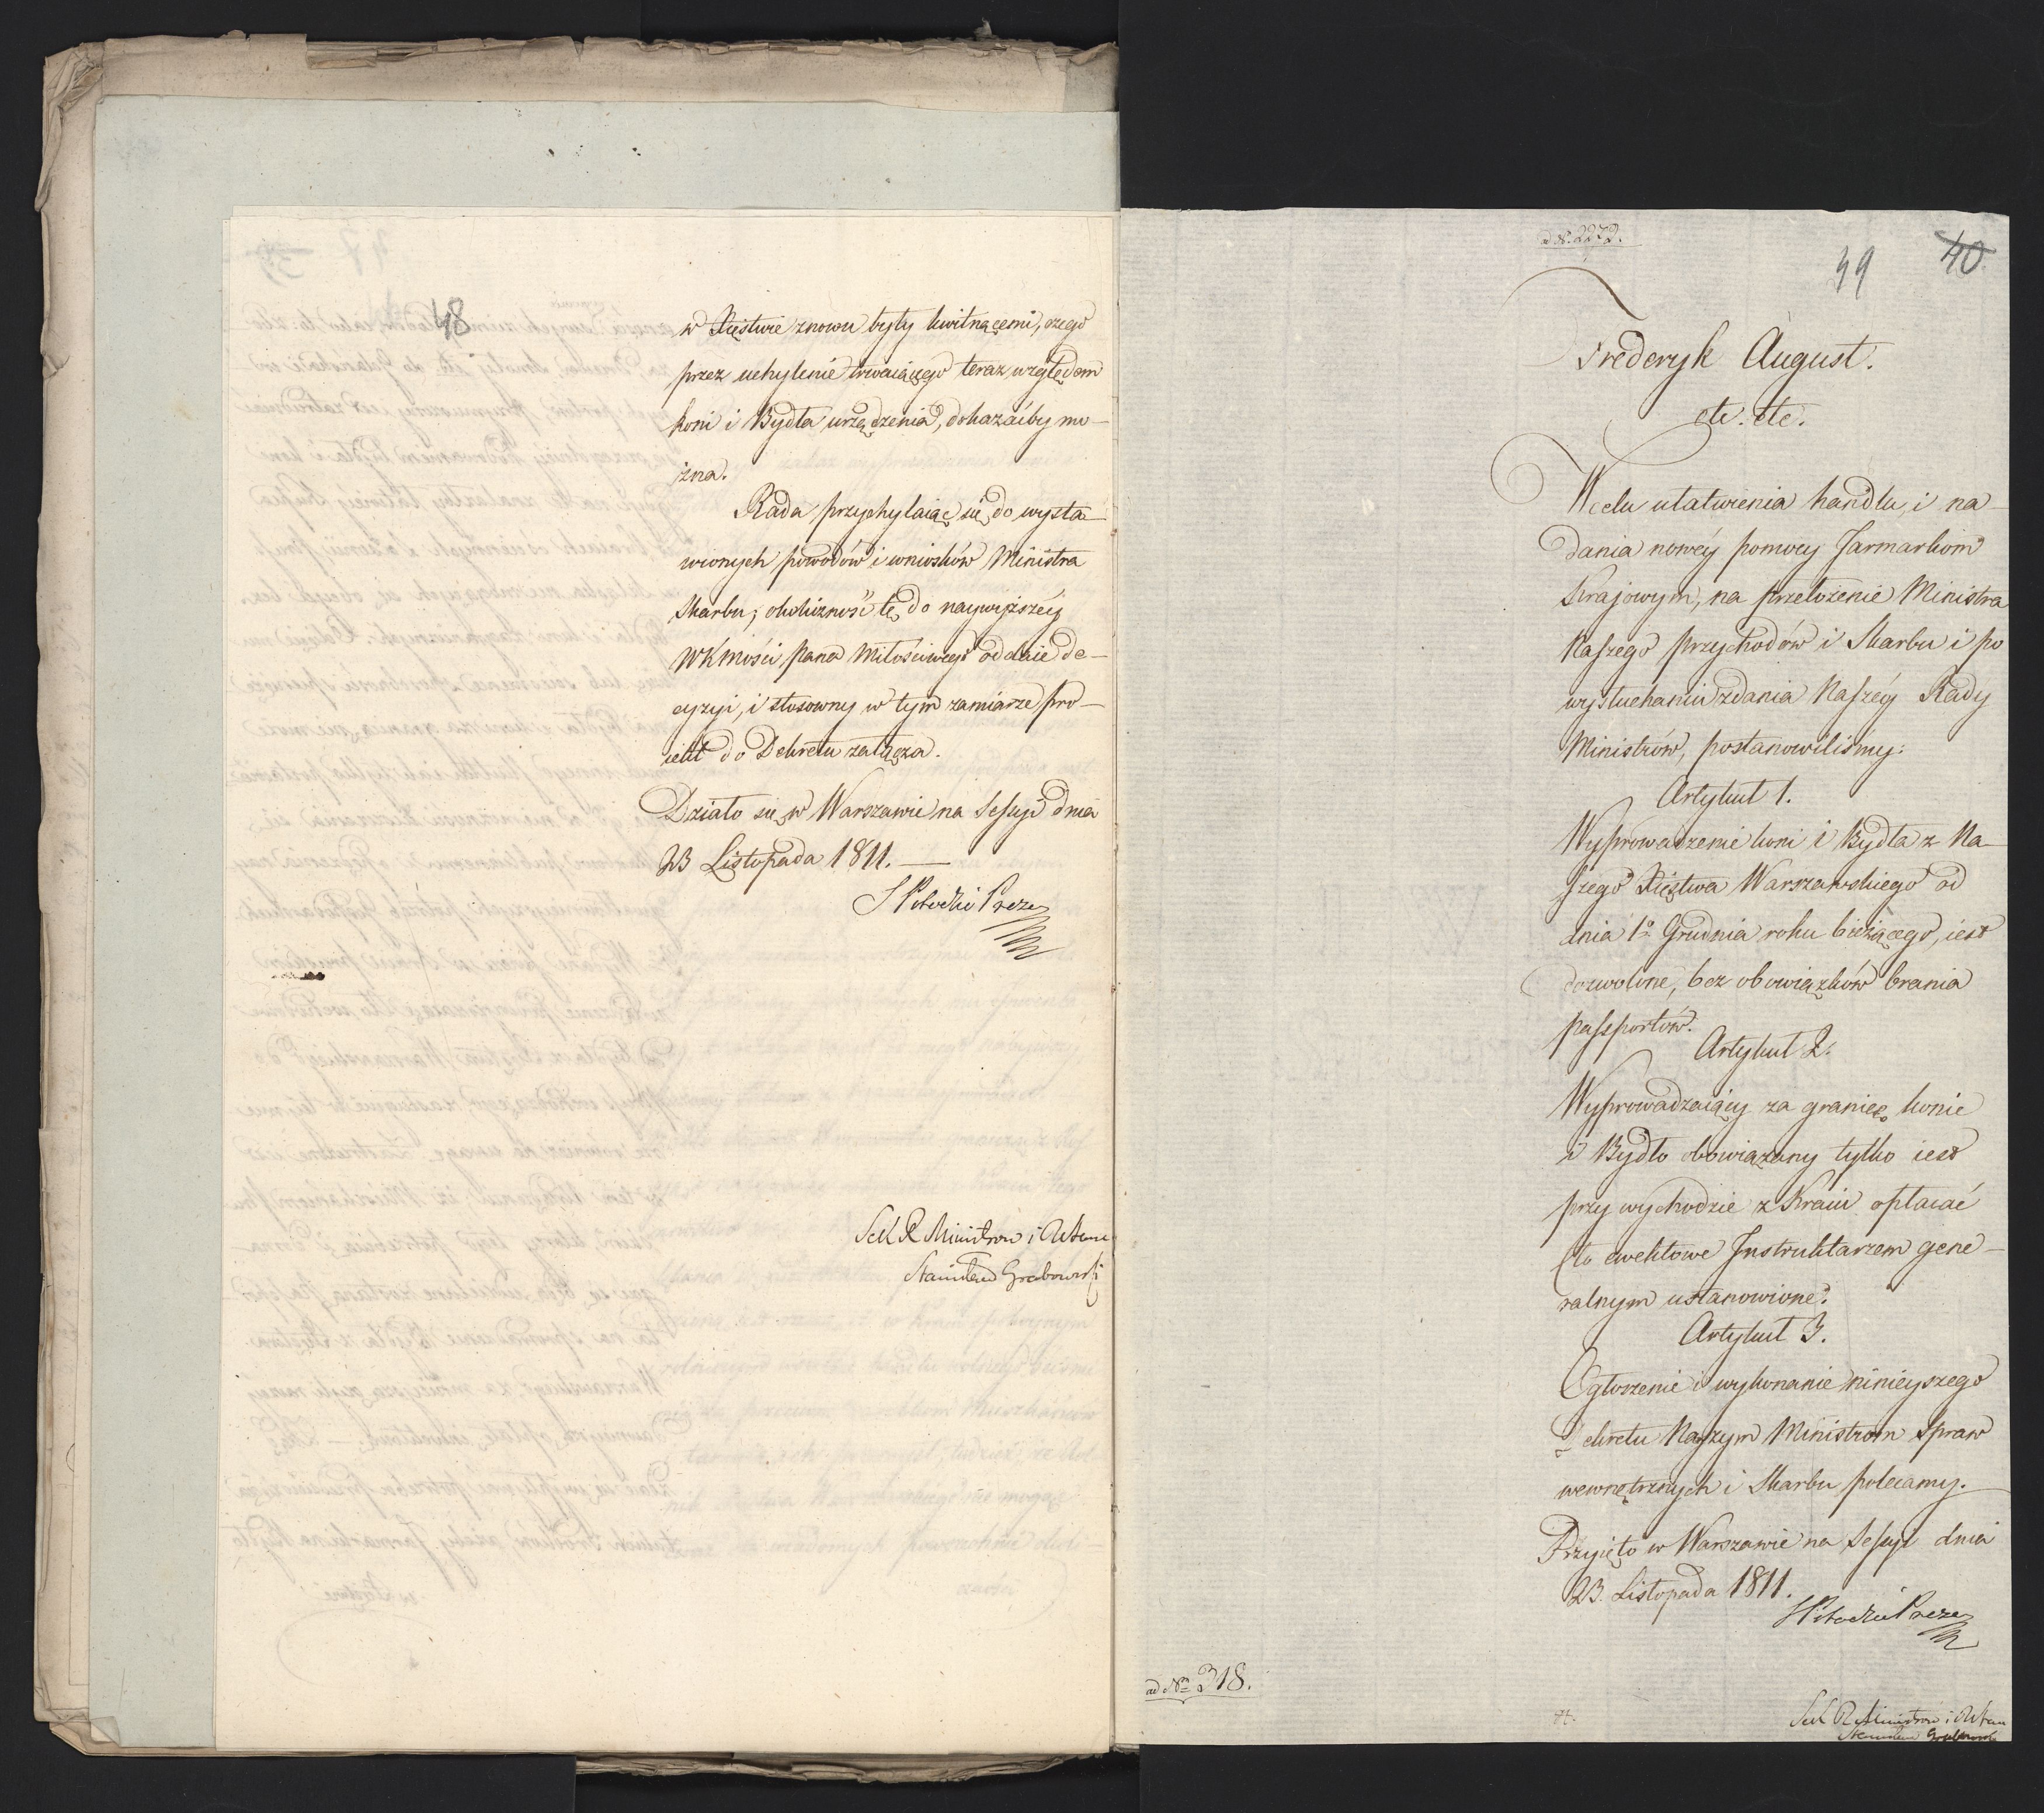 48
w Xięstwie znowu były kwitnącemi, czego
przez uchylenie trwaiącego teraz względem
koni i Bydła urządzenia, dokazaćby mo-
żna.
Rada przychylaiąc się do wysta-
wionych powodów i wniosków Ministra
Skarbu, okoliczność tę do naywyższéy
WKMości Pana Miłościwego oddaie de-
cyzyi, i stosowny w tym zamiarze pro-
iekt do Dekretu załącza.
Działo się w Warszawie na Sessyi dnia
23 Listopada 1811.
S Potocki Prezes
Sek R Ministrow i Stanu
Stanisław Grabowski
ad N. 2272.
49 40
Frederyk August.
etc. etc.
W celu ułatwienia handlu, i na-
dania nowéy pomocy Jarmarkom
Krajowym, na przełożenie Ministra
Naszego Przychodów i Skarbu i po
wysłuchaniu zdania Naszéy Rady
Ministrów, postanowiliśmy:
Artykuł 1.
Wyprowadzenie koni i Bydła z Na-
szego Xięstwa Warszawskiego od
dnia 1o Grudnia roku bieżącego, iest
dozwolone, bez obowiązków brania
passportów.
Artykuł 2.
Wyprowadzaiący za granicę konie
i Bydło obowiązany tylko iest
przy wychodzie z Kraiu opłacać
Cło ewektowe Instruktarzem gene-
ralnym ustanowione.
Artykuł 3.
Ogłoszenie i wykonanie ninieyszego
Dekretu Naszym Ministrom Spraw
wewnętrznych i Skarbu polecamy.
Przyięto w Warszawie na Sessyi dnia
23. Listopada 1811.
S Potocki Prezes
ad No 318.
Sek R Ministrow i Stanu
Stanisław Grabowski